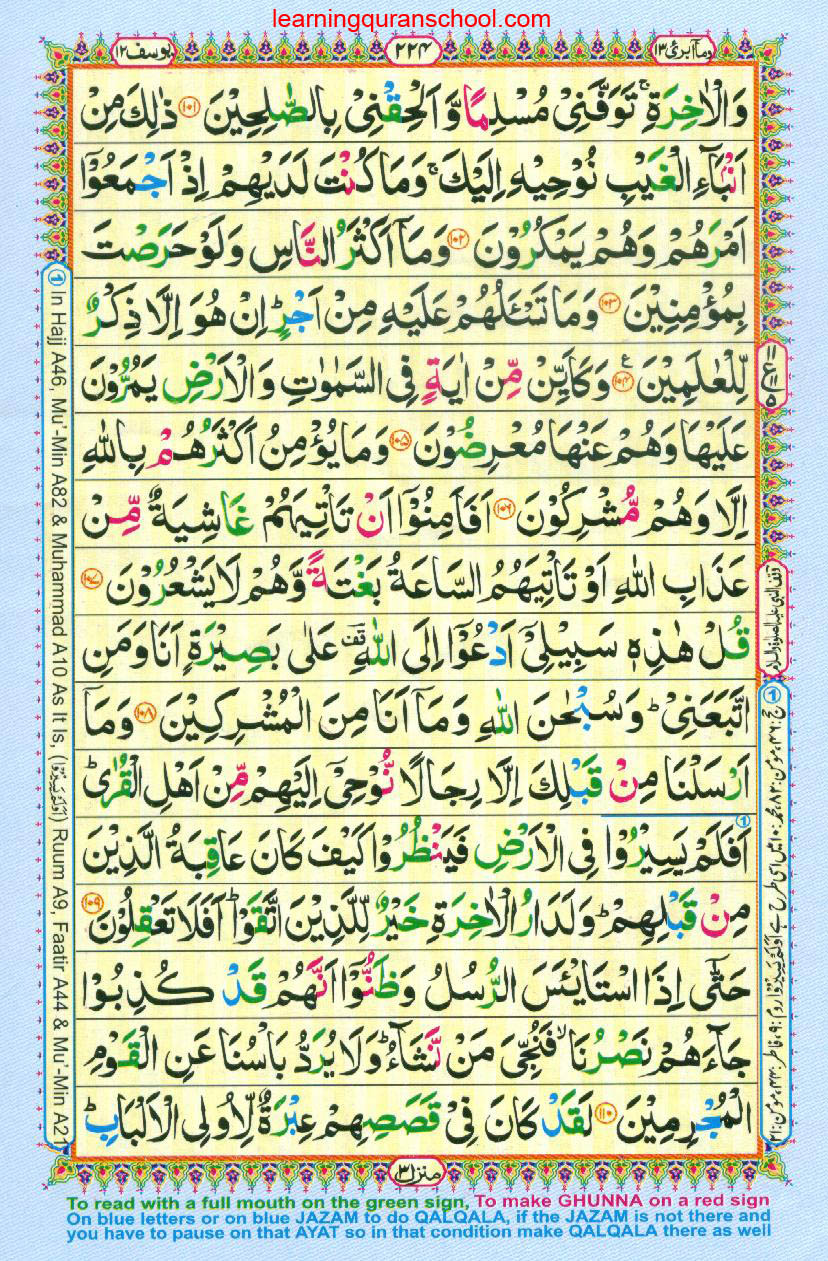 learningquranschool.com
وماۤ ابرئ ١٣
٢٢٤
یوسف ١٢
وَالْاٰخِرَةِ ۚ تَوَفَّنِیْ مُسْلِمًا وَّ اَلْحِقْنِیْ بِالصّٰلِحِیْنَ ﴿۱۰۱﴾ ذٰلِكَ مِنْ
اَنْۢبَآءِ الْغَیْبِ نُوْحِیْهِ اِلَیْكَ ۚ وَمَا كُنْتَ لَدَیْهِمْ اِذْ اَجْمَعُوْۤا
اَمْرَهُمْ وَهُمْ یَمْكُرُوْنَ ﴿۱۰۲﴾ وَمَاۤ اَكْثَرُ النَّاسِ وَلَوْ حَرَصْتَ
بِمُؤْمِنِیْنَ ﴿۱۰۳﴾ وَمَا تَسْـَٔلُهُمْ عَلَیْهِ مِنْ اَجْرٍ ؕ اِنْ هُوَ اِلَّا ذِكْرٌ
لِّلْعٰلَمِیْنَ ﴿۱۰۴﴾ ع وَكَاَیِّنْ مِّنْ اٰیَةٍ فِی السَّمٰوٰتِ وَ الْاَرْضِ یَمُرُّوْنَ
عَلَیْهَا وَهُمْ عَنْهَا مُعْرِضُوْنَ ﴿۱۰۵﴾ وَمَا یُؤْمِنُ اَكْثَرُهُمْ بِاللّٰهِ
اِلَّا وَهُمْ مُّشْرِكُوْنَ ﴿۱۰۶﴾ اَفَاَمِنُوْۤا اَنْ تَاْتِیَهُمْ غَاشِیَةٌ مِّنْ
عَذَابِ اللّٰهِ اَوْ تَاْتِیَهُمُ السَّاعَةُ بَغْتَةً وَّهُمْ لَا یَشْعُرُوْنَ ﴿۱۰۷﴾
قُلْ هٰذِهٖ سَبِیْلِیْۤ اَدْعُوْۤا اِلَی اللّٰهِ قف عَلٰی بَصِیْرَةٍ اَنَا وَمَنِ
اتَّبَعَنِیْ ؕ وَسُبْحٰنَ اللّٰهِ وَمَاۤ اَنَا مِنَ الْمُشْرِكِیْنَ ﴿۱۰۸﴾ وَمَاۤ
اَرْسَلْنَا مِنْ قَبْلِكَ اِلَّا رِجَالًا نُّوْحِیْۤ اِلَیْهِمْ مِّنْ اَهْلِ الْقُرٰی ؕ
اَفَلَمْ یَسِیْرُوْا فِی الْاَرْضِ فَیَنْظُرُوْا كَیْفَ كَانَ عَاقِبَةُ الَّذِیْنَ
مِنْ قَبْلِهِمْ ؕ وَلَدَارُ الْاٰخِرَةِ خَیْرٌ لِّلَّذِیْنَ اتَّقَوْا ؕ اَفَلَا تَعْقِلُوْنَ ﴿۱۰۹﴾
حَتّٰۤی اِذَا اسْتَایْـَٔسَ الرُّسُلُ وَظَنُّوْۤا اَنَّهُمْ قَدْ كُذِبُوْا
جَآءَهُمْ نَصْرُنَا ۙ فَنُجِّیَ مَنْ نَّشَآءُ ؕ وَلَا یُرَدُّ بَاْسُنَا عَنِ الْقَوْمِ
الْمُجْرِمِیْنَ ﴿۱۱۰﴾ لَقَدْ كَانَ فِیْ قَصَصِهِمْ عِبْرَةٌ لِّاُولِی الْاَلْبَابِ ؕ
منزل ٣
① In Hajj A46, Mu'-Min A82 & Muhammad A10 As It Is, (اَوَلَمْ یَسِیْرُوْا) Ruum A9, Faatir A44 & Mu'-Min A21
To read with a full mouth on the green sign, To make GHUNNA on a red sign
On blue letters or on blue JAZAM to do QALQALA, if the JAZAM is not there and
you have to pause on that AYAT so in that condition make QALQALA there as well